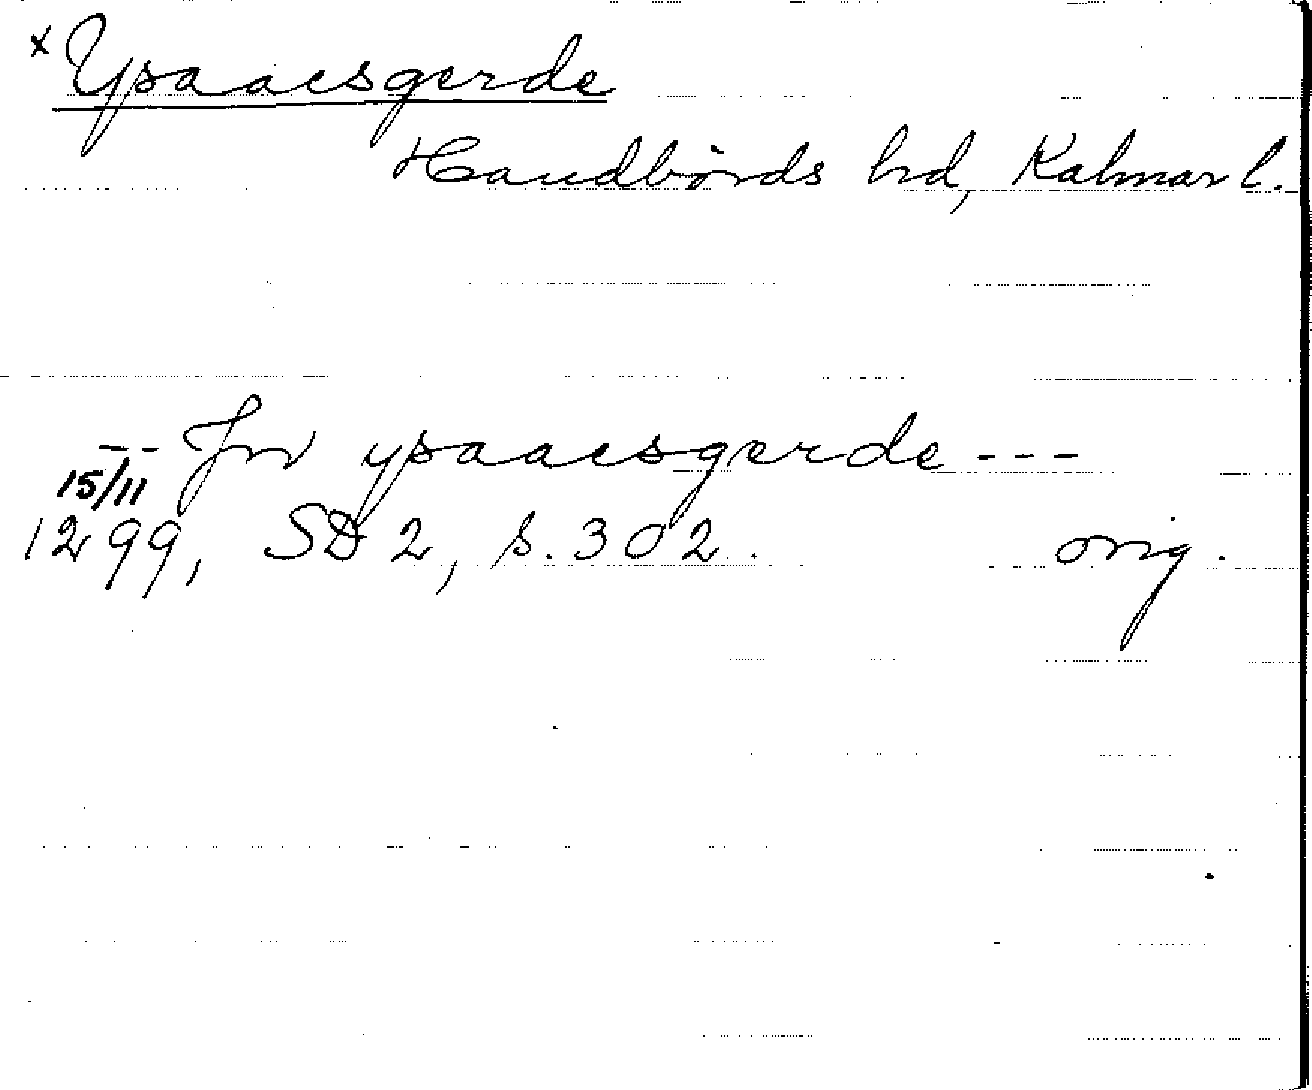 x Ypaacsgerde
Handbörds hd, Kalmar l.
-- Jn ypaacsgerde ---
15/11
1299, SD 2, s. 302. orig.